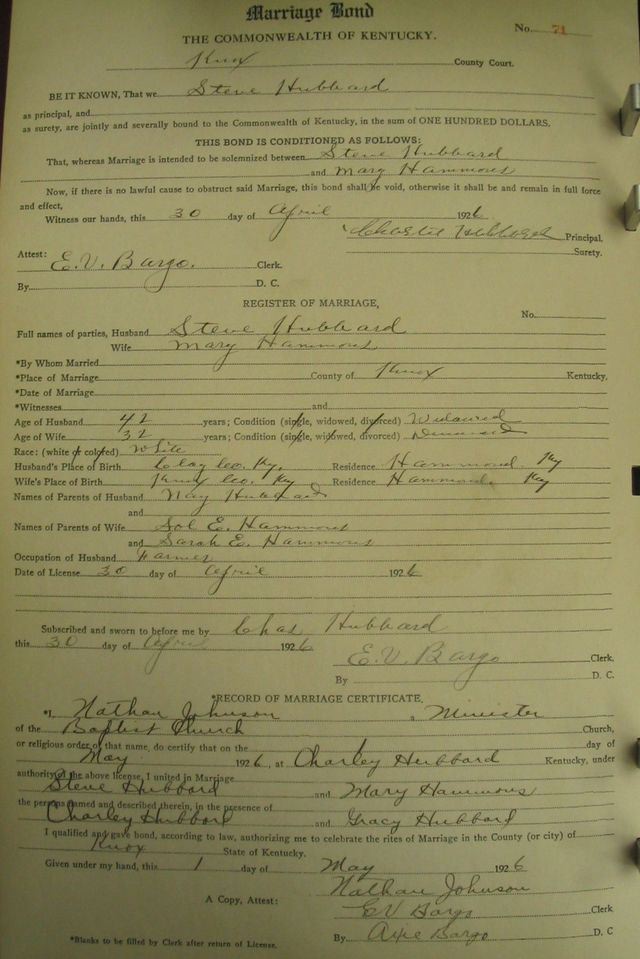 Marriage Bond
No. 71
THE COMMONWEALTH OF KENTUCKY.
Knox County Court.
BE IT KNOWN, That we Steve Hubbard
as principal, and
as surety, are jointly and severally bound to the Commonwealth of Kentucky, in the sum of ONE HUNDRED DOLLARS.
THIS BOND IS CONDITIONED AS FOLLOWS:
That, whereas Marriage is intended to be solemnized between Steve Hubbard
and Mary Hammons
Now, if there is no lawful cause to obstruct said Marriage, this bond shall be void, otherwise it shall be and remain in full force
and effect,
Witness our hands, this 30 day of April 1926.
Principal.
Surety.
Attest: E.V. Bargo. Clerk.
By D. C.
REGISTER OF MARRIAGE,
No.
Full names of parties, Husband Steve Hubbard
Wife Mary Hammons
*By Whom Married
*Place of Marriage County of Knox Kentucky.
*Date of Marriage
*Witnesses and
Age of Husband 42 years; Condition (single, widowed, divorced) Widowed
Age of Wife 32 years; Condition (single, widowed, divorced)
Race: (white or colored) White
Husband's Place of Birth Clay Co. Ky. Residence Hammond. Ky
Wife's Place of Birth Knox Co. Ky Residence Hammond. Ky
Names of Parents of Husband Hubbard
and
Names of Parents of Wife Sol E. Hammons
and Sarah E. Hammons
Occupation of Husband Farmer
Date of License 30 day of April 1926
Subscribed and sworn to before me by Chas Hubbard
this 30 day of April 1926
E.V. Bargo Clerk.
By D. C.
*RECORD OF MARRIAGE CERTIFICATE,
*I, Nathan Johnson, Minister
of the Baptist Church Church,
or religious order of that name, do certify that on the 1 day of
May 1926, at Charley Hubbard Kentucky, under
authority of the above license, I united in Marriage
Steve Hubbard and Mary Hammons
the persons named and described therein, in the presence of
Charley Hubbard and Gracy Hubbard
I qualified and gave bond, according to law, authorizing me to celebrate the rites of Marriage in the County (or city) of
Knox State of Kentucky.
Given under my hand, this 1 day of May 1926
Nathan Johnson
A Copy, Attest: EV Bargo Clerk
By Bargo D. C
*Blanks to be filled by Clerk after return of License.